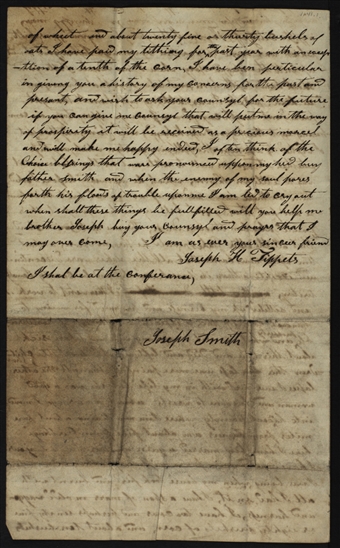 of wheat and about twenty five or thirty bushels of
oats I have paid my tithing for past year with an excep
-tion of a tenth of the corn, I have ben particular
in giving you a history of my concerns for the past and
present, and wish to ask your counsyl for the future
if you can give me counsyl that will put me in the way
of prosperity it will be received as a precious morcel
and will make me happy indeed, I often think of the
Choice blessings that ware pronounced uppon my hed by
father Smith and when the enemy of my soul pores
forth his floods of trouble upon me I am led to cry out
when shall these things be fullfilled will you help me
brother Joseph by your counsyl and prayrs that I
may over come, I am as ever your sincere friend
Joseph H Tippets
I shal be at the conferance,
Joseph Smith